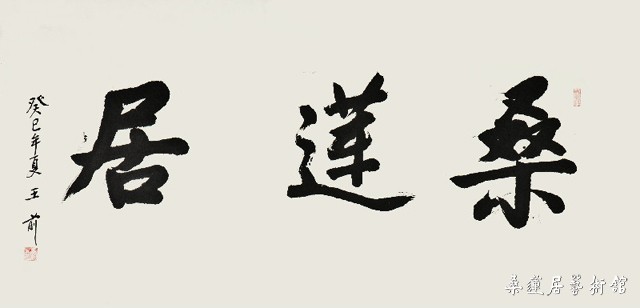 桑莲居
癸巳年夏王前
桑蓮居藝術館